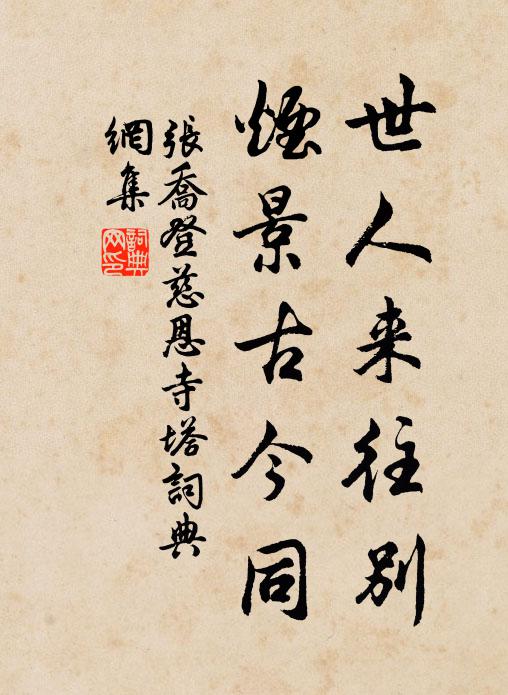 世人来往别
煙景古今同
張喬登慈恩寺塔詞典
網集
詞典
网印